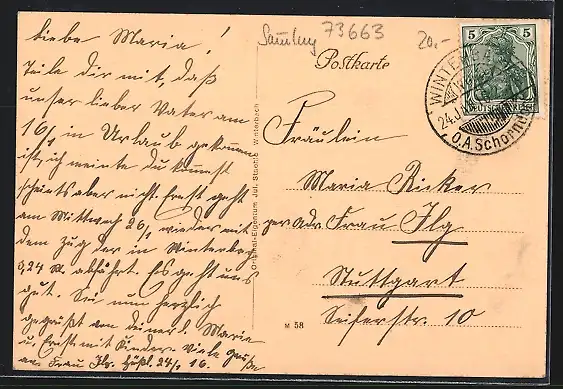 Liebe Maria!
Teile dir mit, daß
unser lieber Vater am
16/1 in Urlaub gekommen
ist, ich meinte du kommst
aber nicht. Ernst geht
am Mittwoch 26/1 wieder mit
dem Zug der in Winterbach
9,24 abfährt. Es geht uns
gut. Sei nun herzlich
gegrüßt von deiner l. Marie
u. Ernst mit Kinder. Viele Grüße
an Frau Ilg. 24/1 16.
Original-Eigentum Jul. Winterbach
73663
20,-
Postkarte
5 5
DEUTSCHES REICH
WINTERBACH
24.
O.A.Schornd
Fräulein
Maria Ricker
per Adr. Frau Ilg
Stuttgart
Seiferstr. 10
M 58